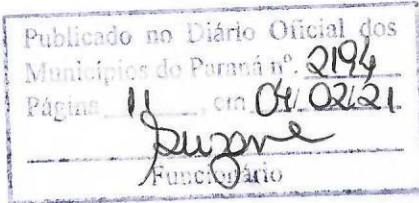 Publicado no Diário Oficial dos
Municípios do Paraná nº. 2194
Página 11, em 04/02/21
Suzane
Funcionário